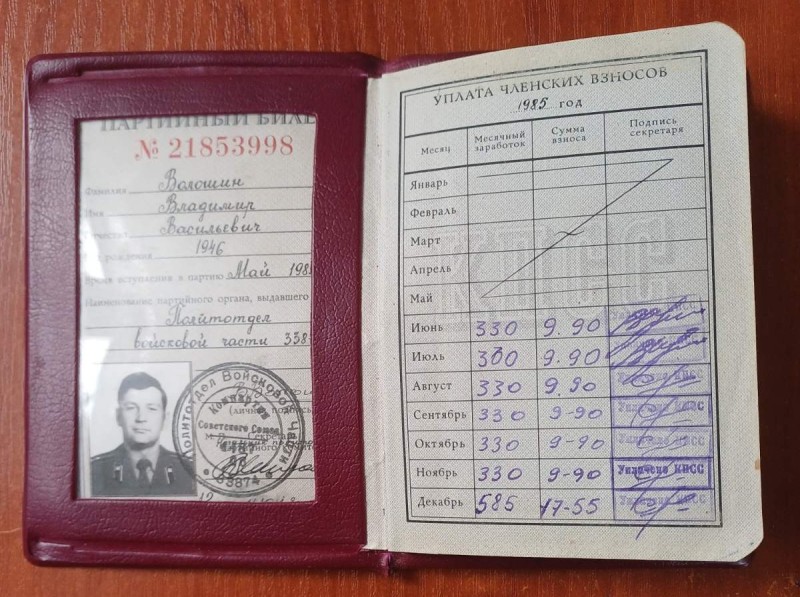 ПАРТИЙНЫЙ БИЛЕ
№ 21853998
Фамилия Волошин
Имя Владимир
Отчество Васильевич
рождения 1946
Время вступления в партию Май 198
Наименование партийного органа, выдавшего
Политотдел
войсковой части 338
Политотдел Войсковой Части
Компартия
Советского Союза
33874
УПЛАТА ЧЛЕНСКИХ ВЗНОСОВ
1985 год
Месяц Месячный заработок Сумма взноса Подпись секретаря
Январь
Февраль
Март
КПСС
Апрель
Май
Июнь 330 9.90
Июль 300 9.90
Август 330 9.90 КПСС
Сентябрь 330 9-90 Уплачено КПСС
Октябрь 330 9-90 Уплачено КПСС
Ноябрь 330 9-90 Уплачено КПСС
Декабрь 585 17-55 Уплачено КПСС